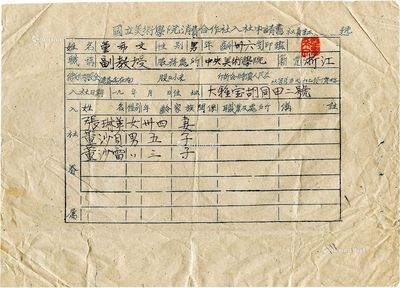 國立美術學院消費合作社入社申請書 社員証 號
姓名 董希文 性別 男 年齡 卅六 印鑑
職稱 副教授 服務處所 中央美術學院 籍貫 浙江
入社日期 一九 年 月 日 住址 大雅宝胡同甲二號
入社眷屬 姓名 性別 年齡 家族關係 職業及處所 備註
張琳英 女 卅四 妻
董沙貝 男 五 子
董沙雷 〃 三 子